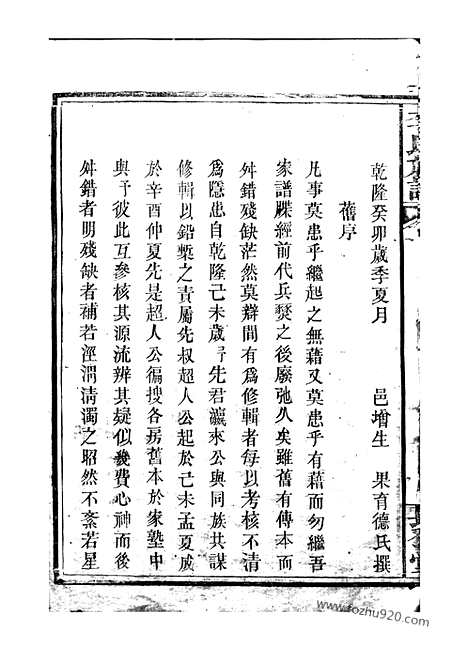 乾隆癸卯歲季夏月　邑增生　果育德氏撰
舊序
凡事莫患乎繼起之無藉又莫患乎有藉而勿繼吾
家譜牒經前代兵燹之後廢弛久矣雖舊有傳本而
舛錯殘缺茫然莫辯間有爲修輯者每以考核不清
爲隱患自乾隆己未歲先君瀛來公與同族共謀
修輯以鉛槧之責屬先叔超人公起於己未孟夏成
於辛酉仲夏先是超人公徧搜各房舊本於家塾中
與予彼此互參核其源流辨其疑似幾費心神而後
舛錯者明殘缺者補若涇渭清濁之昭然不紊若星
www.fozhu920.com